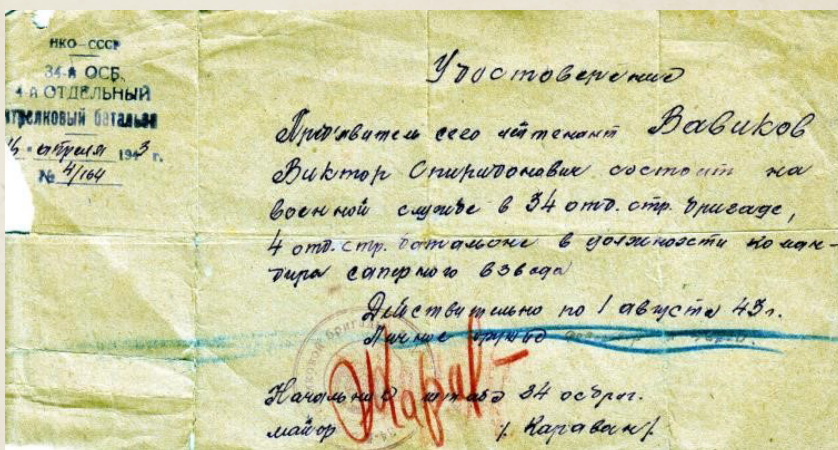 НКО-СССР
34-я ОСБ,
4-й ОТДЕЛЬНЫЙ
стрелковый батальон
апреля 1943 г.
№ 4/164
Удостоверение
Предъявитель сего лейтенант Вавиков
Виктор Спиридонович состоит на
военной службе в 34 отд. стр. бригаде,
4 отд. стр. батальоне в должности коман-
дира саперного взвода
Действительно по 1 августа 43 г.
Личное оружие
Начальник штаба 34 осбриг.
майор /Караван/